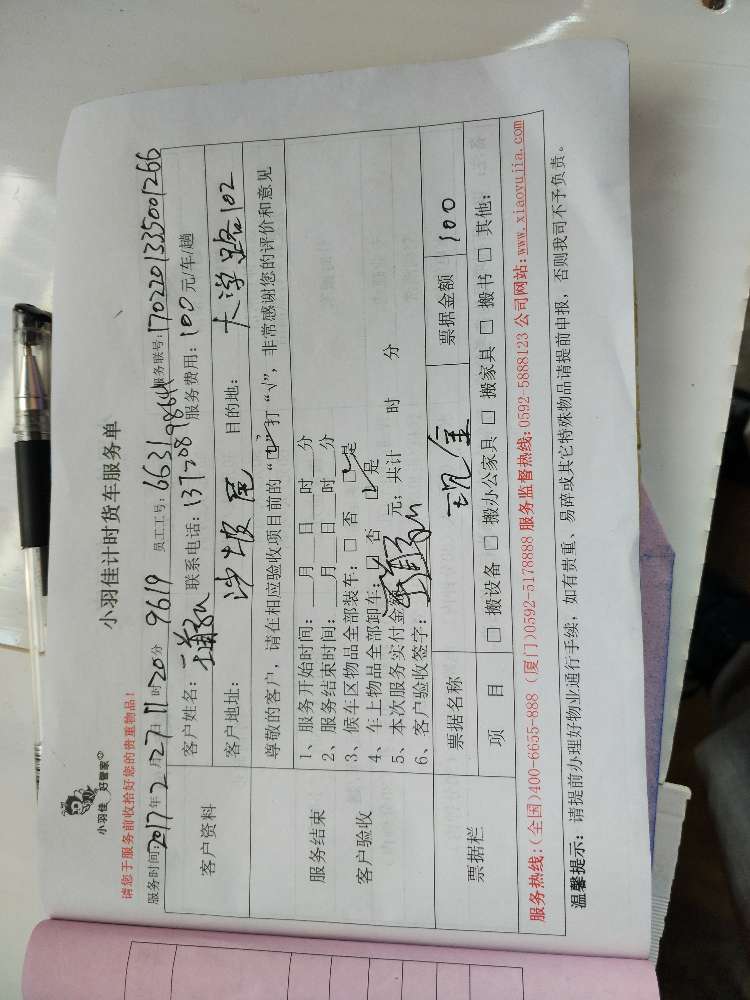 小羽佳 好管家
小羽佳计时货车服务单
请您于服务前收拾好您的贵重物品!
服务时间:2017年2月27日11时20分 9619 员工工号:6631 服务联号:1702201335001266
客户资料 客户姓名: 联系电话: 服务费用:100元/车/趟
客户地址: 沙坡尾 目的地: 大学路102
尊敬的客户,请在相应验收项目前的“□”打“√”,非常感谢您的评价和意见
服务结束
客户验收
1、服务开始时间:____月____日____时____分
2、服务结束时间:____月____日____时____分
3、候车区物品全部装车:□ 否 ☑ 是
4、车上物品全部卸车:□ 否 ☑ 是
5、本次服务实付金额 元;共计 时 分
6、客户验收签字:
票据栏 票据名称 现金 票据金额 100
项 目 □ 搬设备 □ 搬办公家具 □ 搬家具 □ 搬书 □ 其他:
服务热线:(全国)400-6655-888 (厦门)0592-5178888 服务监督热线:0592-5888123 公司网站:www.xiaoyujia.com
温馨提示: 请提前办理好物业通行手续,如有贵重、易碎或其它特殊物品请提前申报,否则我司不予负责。